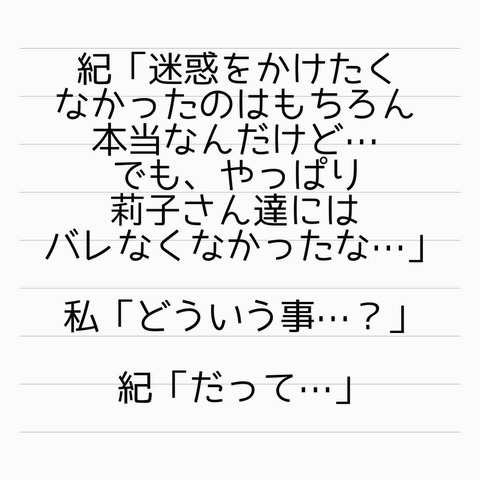 紀「迷惑をかけたく
なかったのはもちろん
本当なんだけど…
でも、やっぱり
莉子さん達には
バレなくなかったな…」
私「どういう事…？」
紀「だって…」